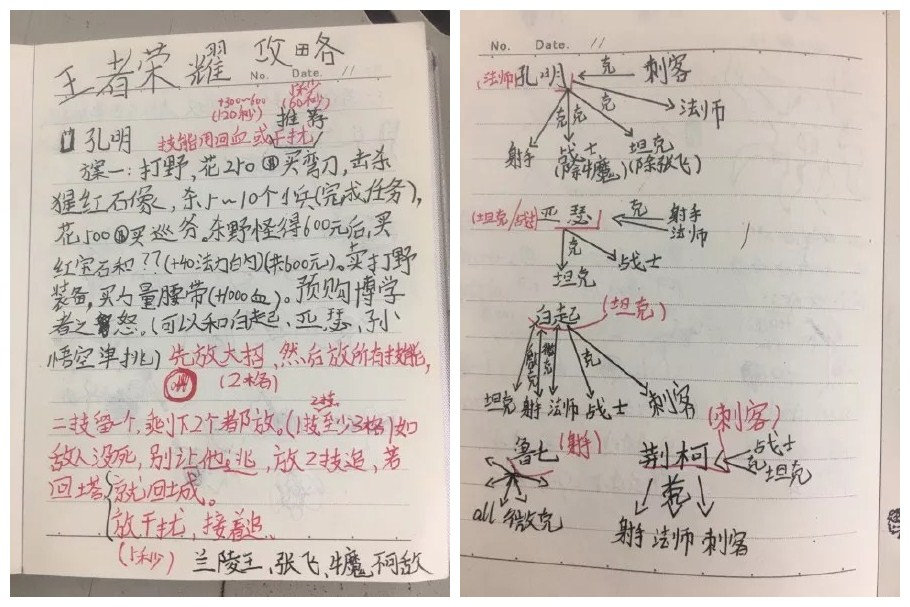 王者荣耀 攻略
No. Date. / /
+300~600
(120秒)
(60秒)
推荐
孔明 技能用回血或干扰
方案一:打野,花250 买弯刀,击杀
猩红石像,杀5~10个小兵(完成任务),
花500 买巡务。杀野怪得600元后,买
红宝石和??(+40法力的)(共600元)。卖打野
装备,买力量腰带(+1000血)。预购博学
者之怒。(可以和白起、亚瑟、孙
悟空单挑)先放大招,然后放所有技能,
(2格)
2技
二技留一个,剩下2个都放。(1技至少3格)如
敌人没死,别让他逃,放2技追,若
回塔 就回城。
放干扰,接着追、
(5秒) 兰陵王、张飞、牛魔、不可敌
No. Date. / /
(法师)孔明 克 刺客
克 法师
克克
射手 战士 坦克
(除牛魔)(除张飞)
(坦克/战士)亚瑟 克 射手
法师
克
坦克 战士
白起 (坦克)
微克 克
坦克 射手 法师 战士 刺客
鲁七 (射) (刺客)
荆柯 战士
克 坦克
all 微克 克
射手 法师 刺客